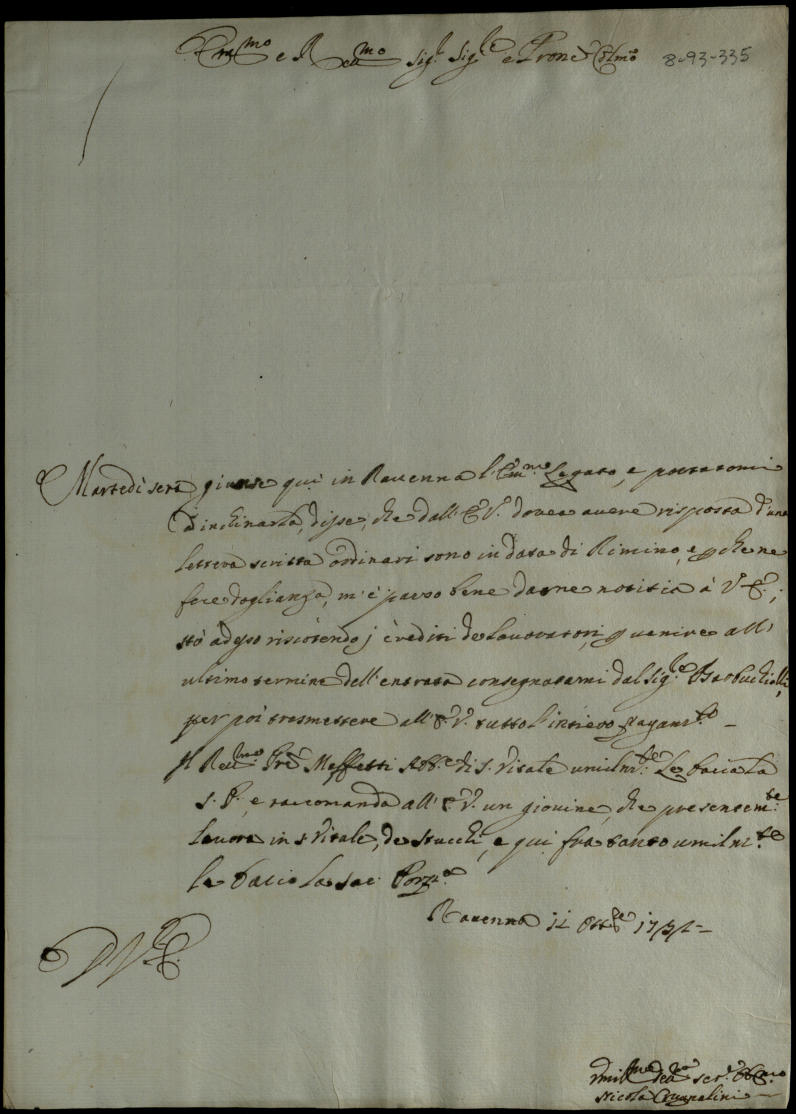 Em.mo e R.mo Sig.r Sig.re e P.rone Col.mo 8-93-335
Martedi sera giunse qui in Ravenna l'Em.mo Legato, e portatomi
ad inchinarla, disse, che dall'E.V. dovea avere risposta d'una
lettera scritta ordinari sono in data di Rimino, e che ne
fece doglianza, m'è parso bene darne notitia à V.E.;
stò adesso riscotendo i crediti de Lavoratori, p venire all'
ultimo termine dell'entrata consegnatami dal Sig.re
per poi trasmettere all'E.V. tutto l'intiero pagam.to –
Il Re.mo P.re Maffetti Ab.e di S. Vitale umilm.te Le bacia la
S. P. e racomanda all'E.V. un giovine, che presentem.te
lavora in S. Vitale, de Stucchi, e qui fra tanto umilm.te
le bacio la Sac. Porp.a
Ravenna Ott.re
D V.E.
Umil.mo Dev.mo Ser.e Obl.mo
Nicola